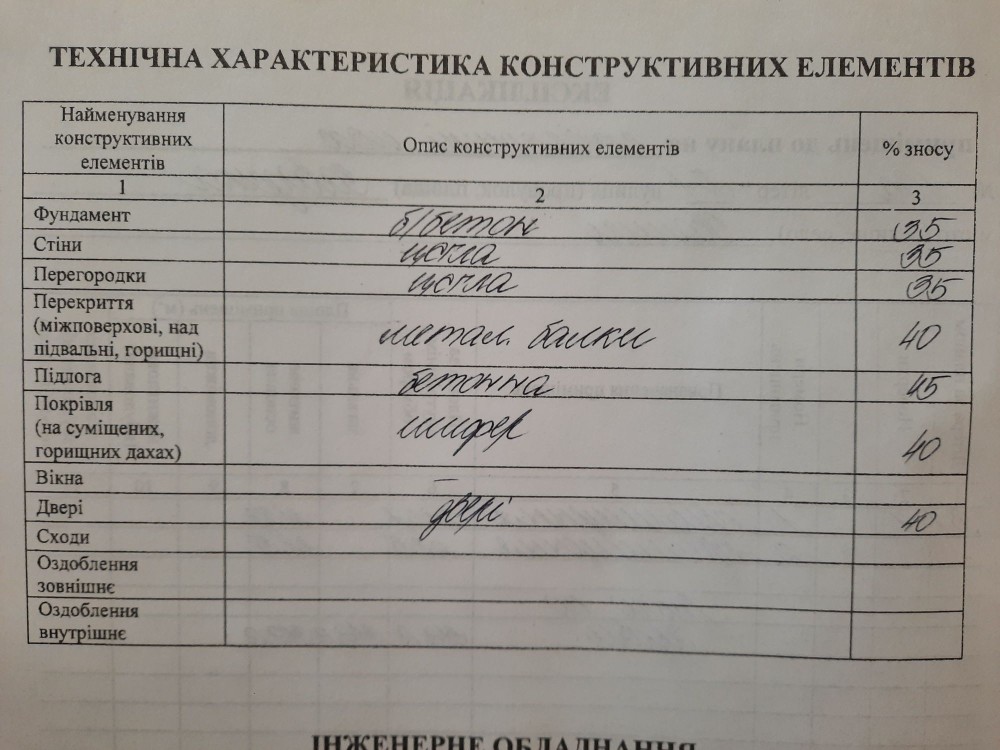 ТЕХНІЧНА ХАРАКТЕРИСТИКА КОНСТРУКТИВНИХ ЕЛЕМЕНТІВ
Найменування
конструктивних
елементів
Опис конструктивних елементів
% зносу
1 2 3
Фундамент б/бетон 35
Стіни цегла 35
Перегородки цегла 35
Перекриття
(міжповерхові, над
підвальні, горищні)
метал. балки 40
Підлога бетонна 45
Покрівля
(на суміщених,
горищних дахах)
шифер 40
Вікна
Двері двері 40
Сходи
Оздоблення
зовнішнє
Оздоблення
внутрішнє
ІНЖЕНЕРНЕ ОБЛАДНАННЯ